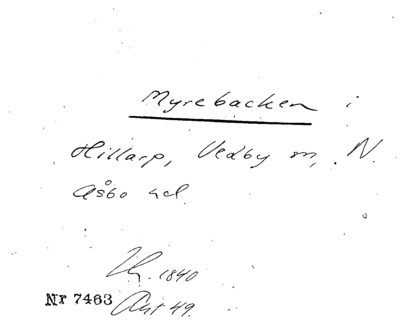 Myrebacken i
Hillarp, Vedby sn, N.
Åsbo hd.
1840
Nr 7463 Akt 49.